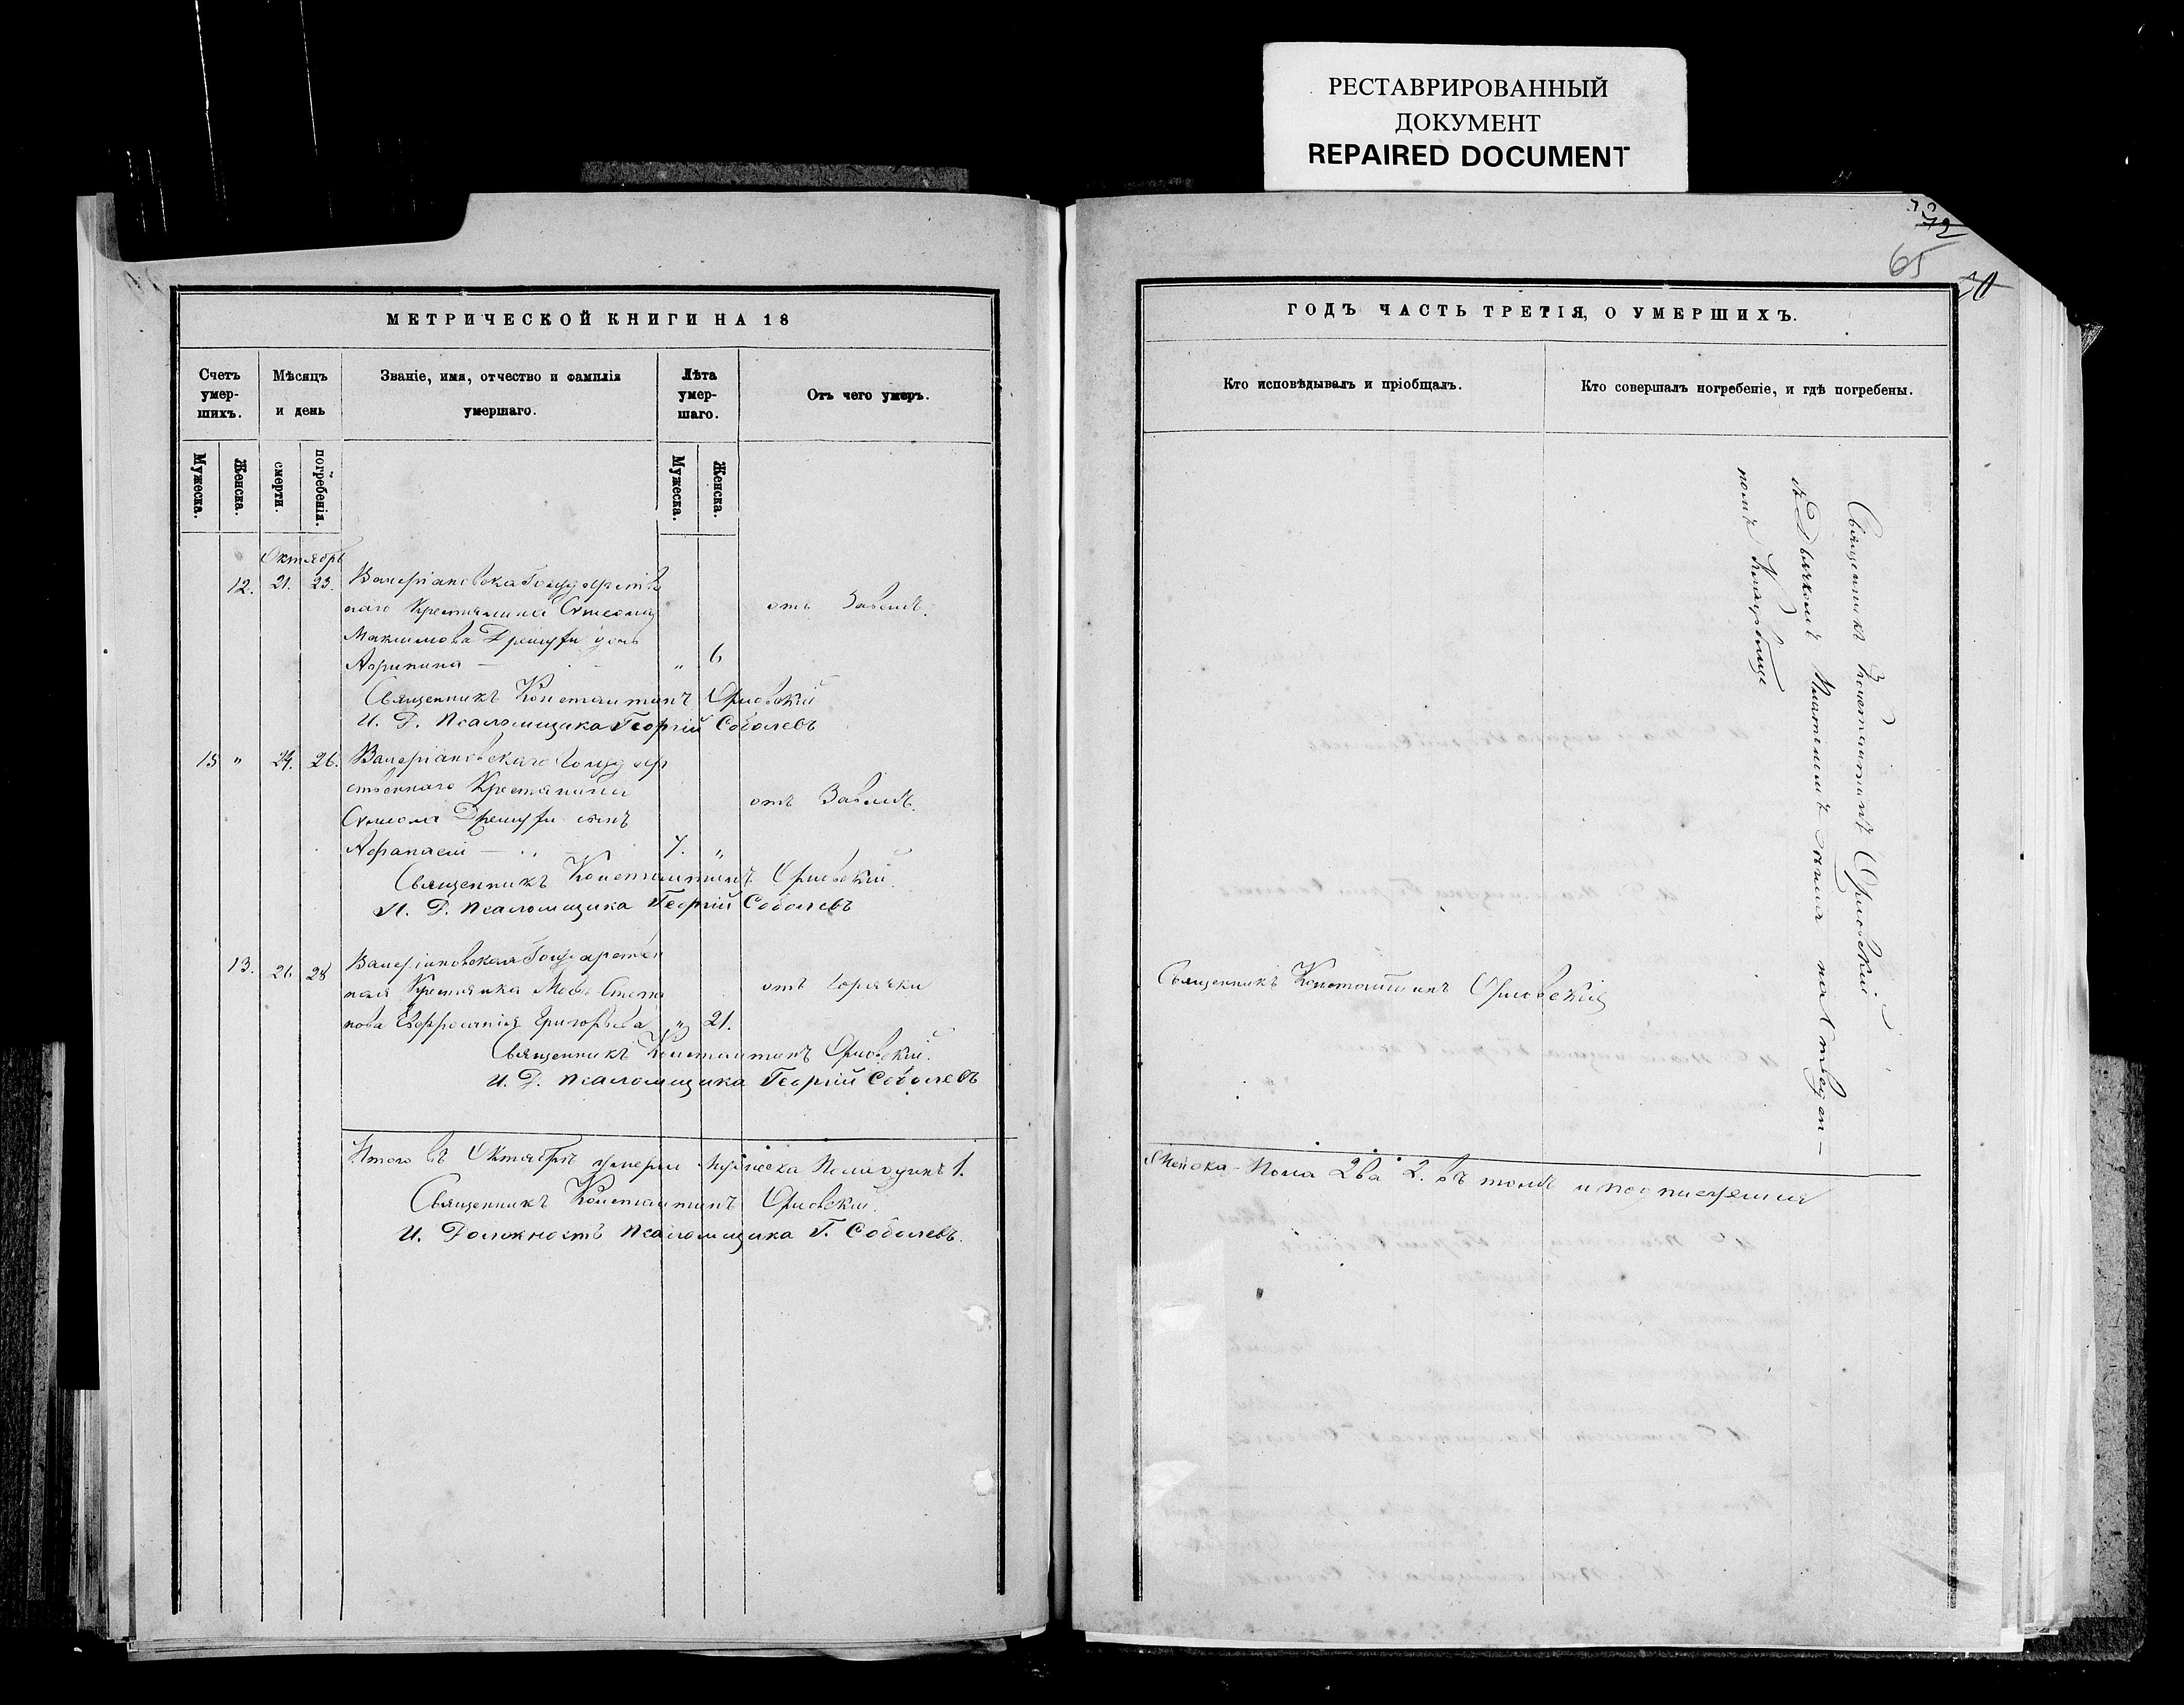 РЕСТАВРИРОВАННЫЙ
ДОКУМЕНТ
REPAIRED DOCUMENT
65
МЕТРИЧЕСКОЙ КНИГИ НА 18
Счетъ умер-шихъ.
Мѣсяцъ и день
Званіе, имя, отчество и фамилія умершаго.
Лѣта умер-шаго.
Отъ чего умеръ.
Мужеска.
Женска.
смерти.
погребенія.
Мужеска.
Женска.
Октябрь
12. 21. 23. Валеріановска Государств
наго Крестьянина Симеона отъ
Максимова дочь
Агрипина — „ 6
Священникъ Константинъ Орловскій
И. Д. Псаломщика Георгій Соболевъ
13 „ 24. 26. Валеріановскаго Государ
ственнаго Крестянина отъ
Симеона сынъ
Афанасій — 7. „
Священникъ Константинъ Орловскій.
И. Д. Псаломщика Георгій Соболевъ
13. 26 28 Валеріановская Государствен
ная Крестьянка Степа отъ Горячки
нова Евфросинія Григорьева „ 21.
Священникъ Константинъ Орловскій.
И. Д. Псаломщика Георгій Соболевъ
Итого въ Октябрѣ умерли Мужеска Пола одинъ 1.
Священникъ Константинъ Орловскій.
И. Должность Псаломщика Г. Соболевъ.
ГОДЪ ЧАСТЬ ТРЕТІЯ, О УМЕРШИХЪ.
Кто исповѣдывалъ и пріобщалъ.
Кто совершалъ погребеніе, и гдѣ погребены.
Священникъ Константинъ Орловскій
на отведен—
номъ Кладбище
Священникъ Константинъ Орловскій
Женска Пола два 2. въ томъ и подписуемся